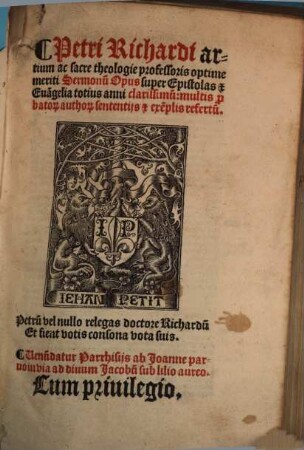 ¶Petri Richardi ar-
tium ac sacre theologie professoris optime
meriti Sermonū Opus super Epistolas ⁊
Euāgelia totius anni clarissimū: multis ꝓ
batoꝝ authoꝝ sententijs ⁊ exēplis refertū.
I P
IEHAN PETIT
Petrū vel nullo relegas doctore Richardū
Et fient votis consona vota suis.
¶Uenūdatur Parrhisijs ab Joanne par
uo in via ad diuum Jacobū sub lilio aureo.
Cum priuilegio.